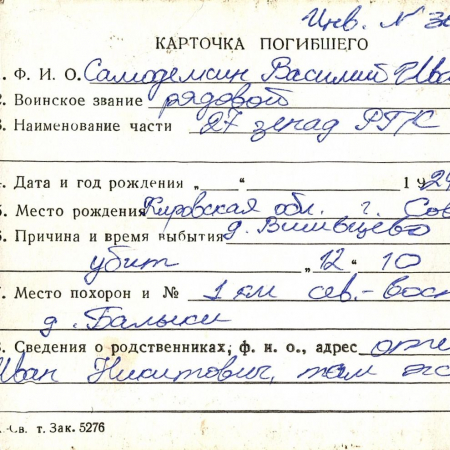 Инв. N
КАРТОЧКА ПОГИБШЕГО
1. Ф. И. О. Самоделкин Василий Ива
2. Воинское звание рядовой
3. Наименование части 27 зенад РГК
4. Дата и год рождения „ “ 1924
5. Место рождения Кировская обл. г. Сов
6. Причина и время выбытия д.
убит „12“ 10
7. Место похорон и № 1 км сев.-вост
д. Балыки
8. Сведения о родственниках, ф. и. о., адрес отец
Иван Никитович, там же
-Св. т. Зак. 5276